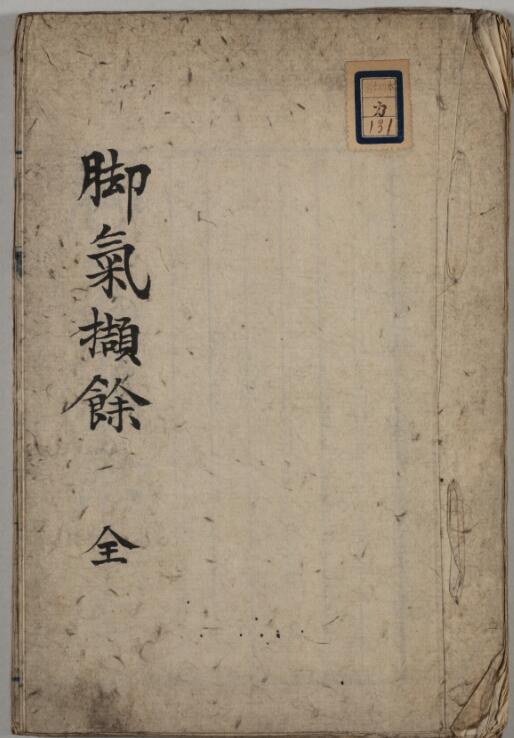 脚氣擷餘 全
カ
131